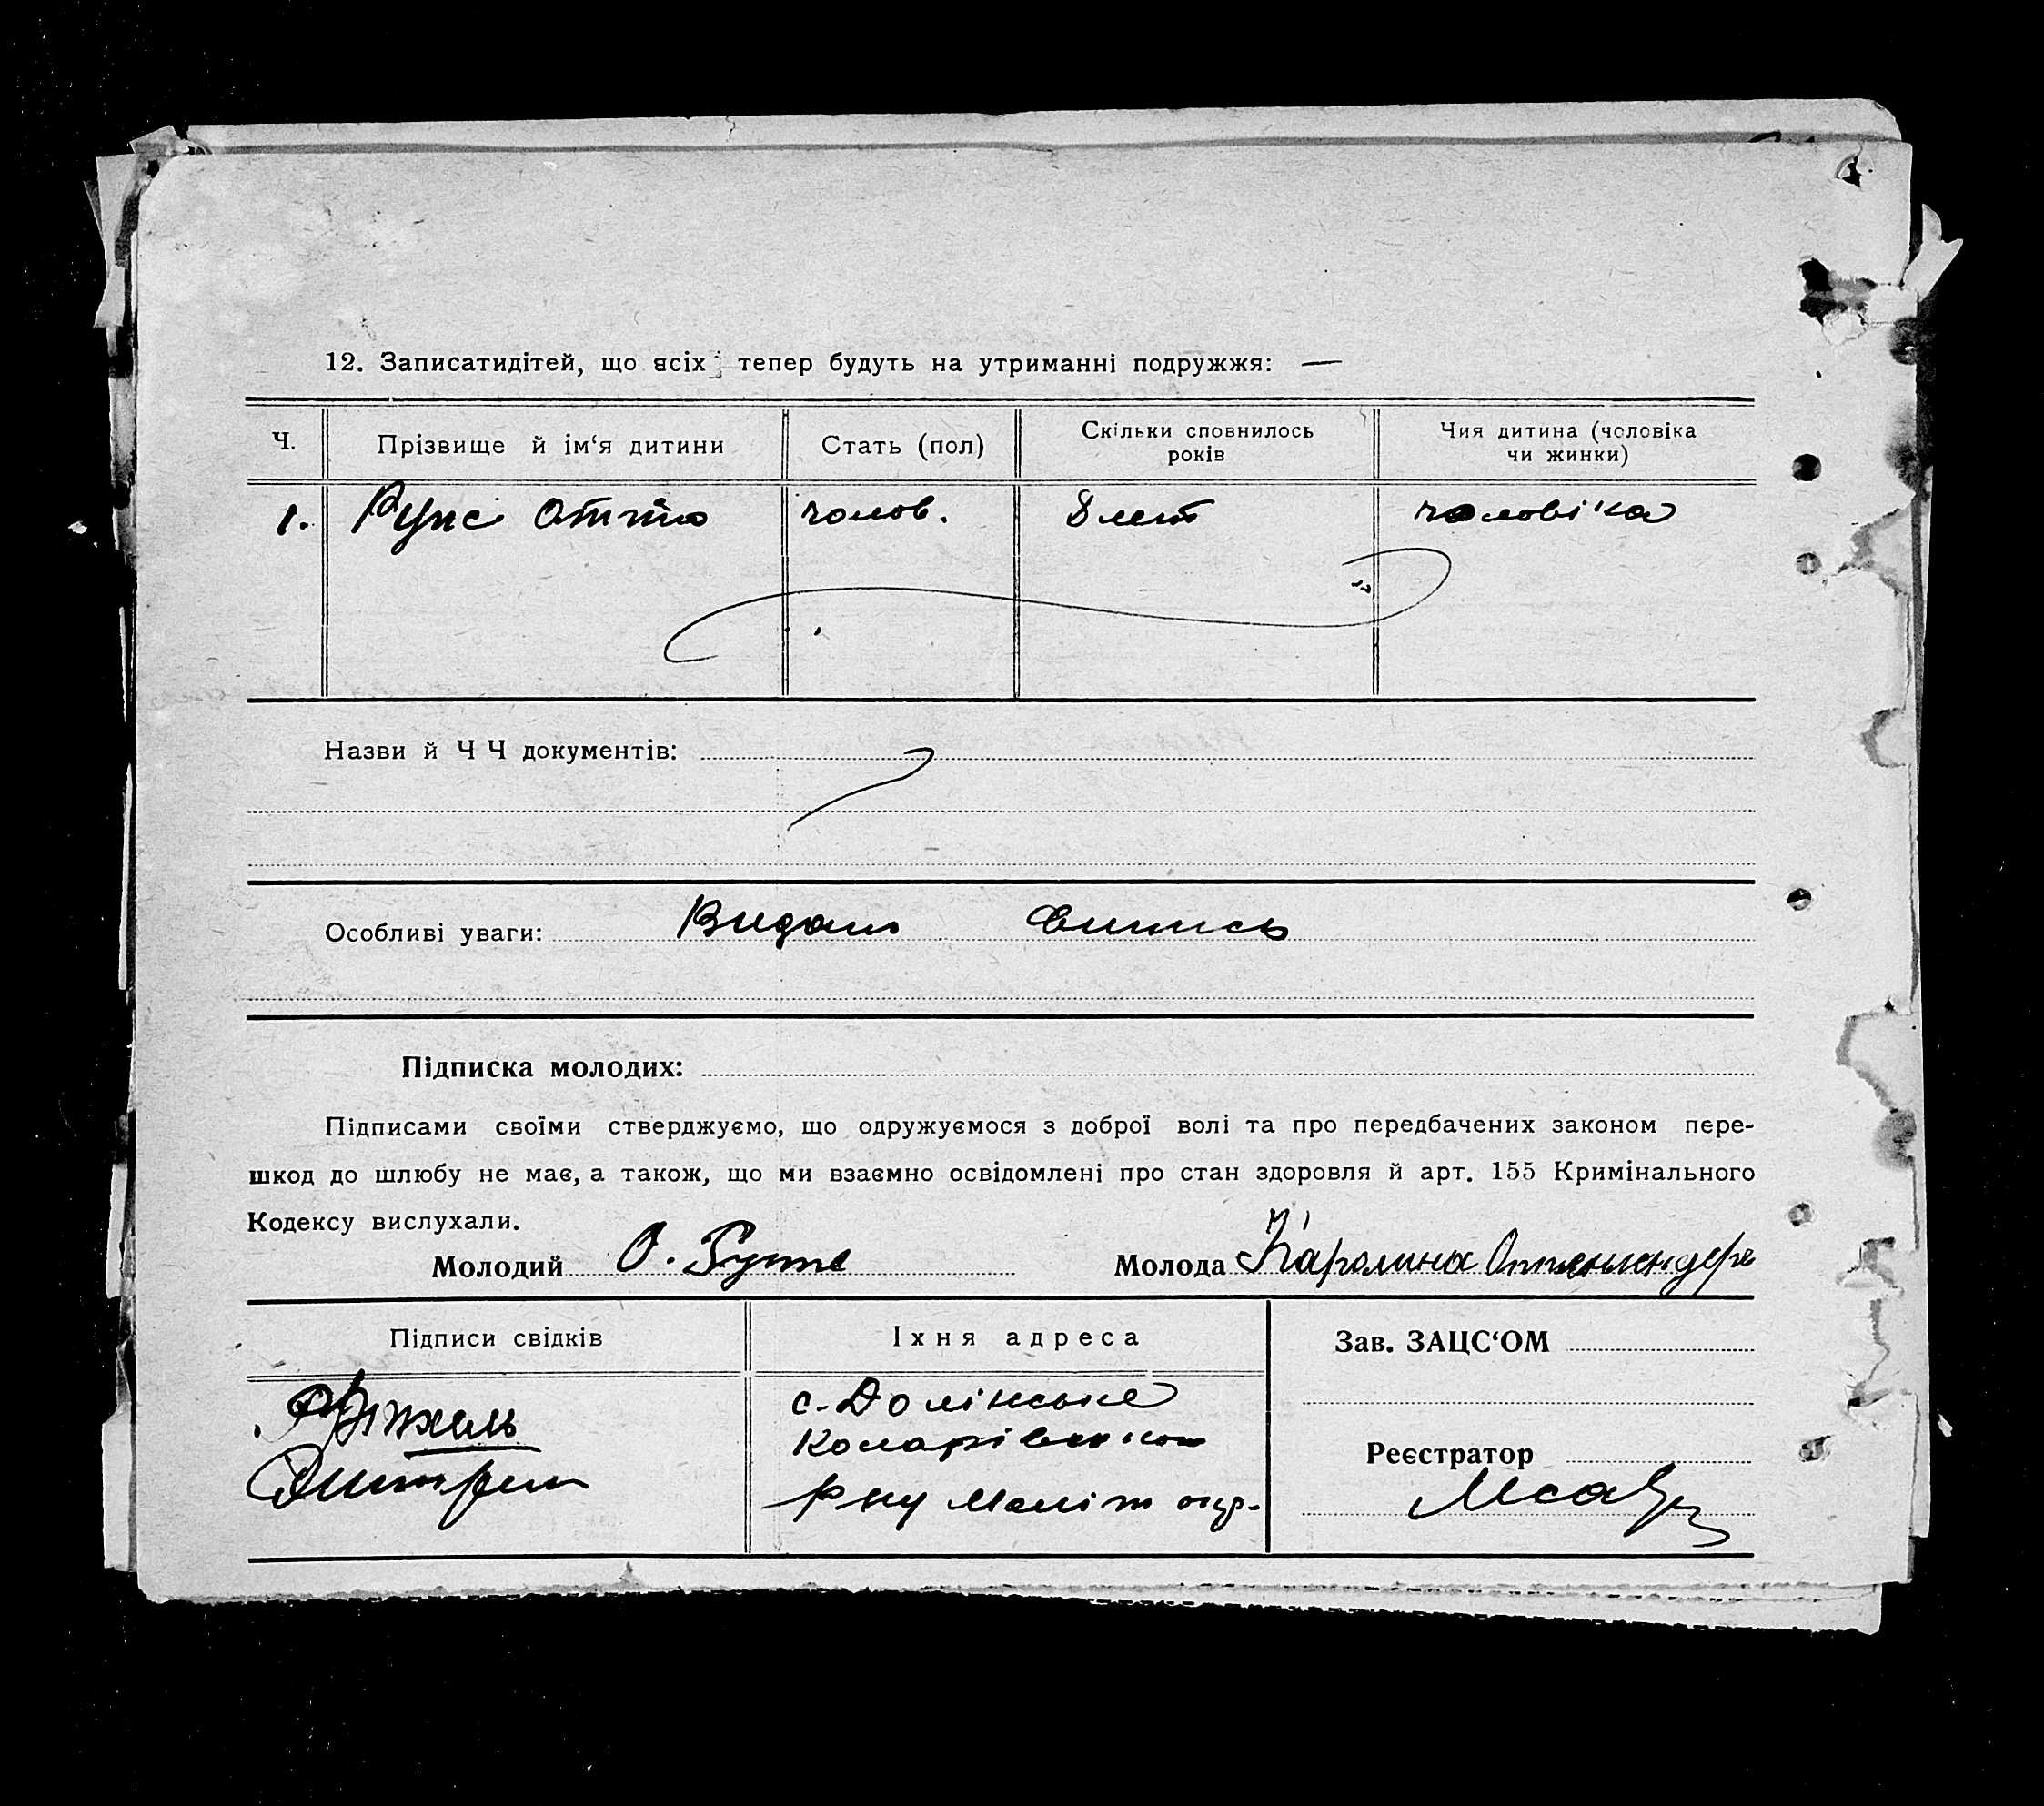 12. Записатидітей, що всіх тепер будуть на утриманні подружжя: —
Ч. Прізвище й ім‘я дитини Стать (пол) Скільки сповнилось років Чия дитина (чоловіка чи жинки)
1. Отто чолов. 8 лет чоловіка
Назви й Ч Ч документів:
Особливі уваги: Видано выпись
Підписка молодих:
Підписами своїми стверджуємо, що одружуємося з доброї волі та про передбачених законом пере-
шкод до шлюбу не має, а також, що ми взаємно освідомлені про стан здоровля й арт. 155 Кримінального
Кодексу вислухали.
Молодий О. Молода Каролина
Підписи свідків Їхня адреса Зав. ЗАЦС‘ОМ
с. Долінське
Реєстратор
р ну Меліт окр.